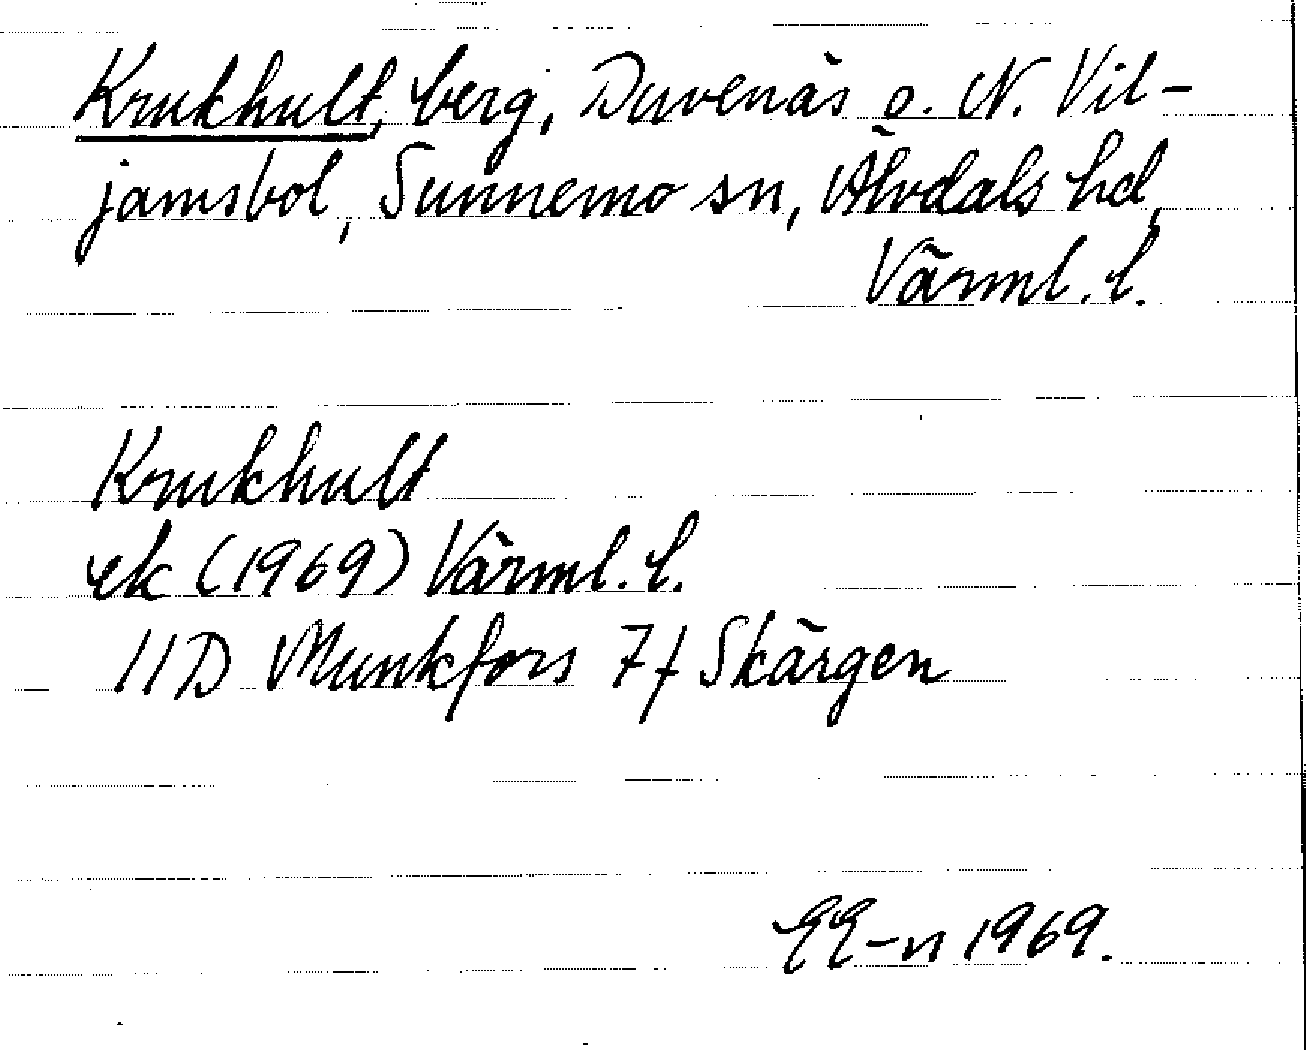 Krukhult, berg, Duvenäs o. N. Vil-
jamsbol, Sunnemo sn, Älvdals hd,
Värml. l.
Krukhult
ek (1969) Värml. l.
11D Munkfors 7f Skärgen
EE-n 1969.